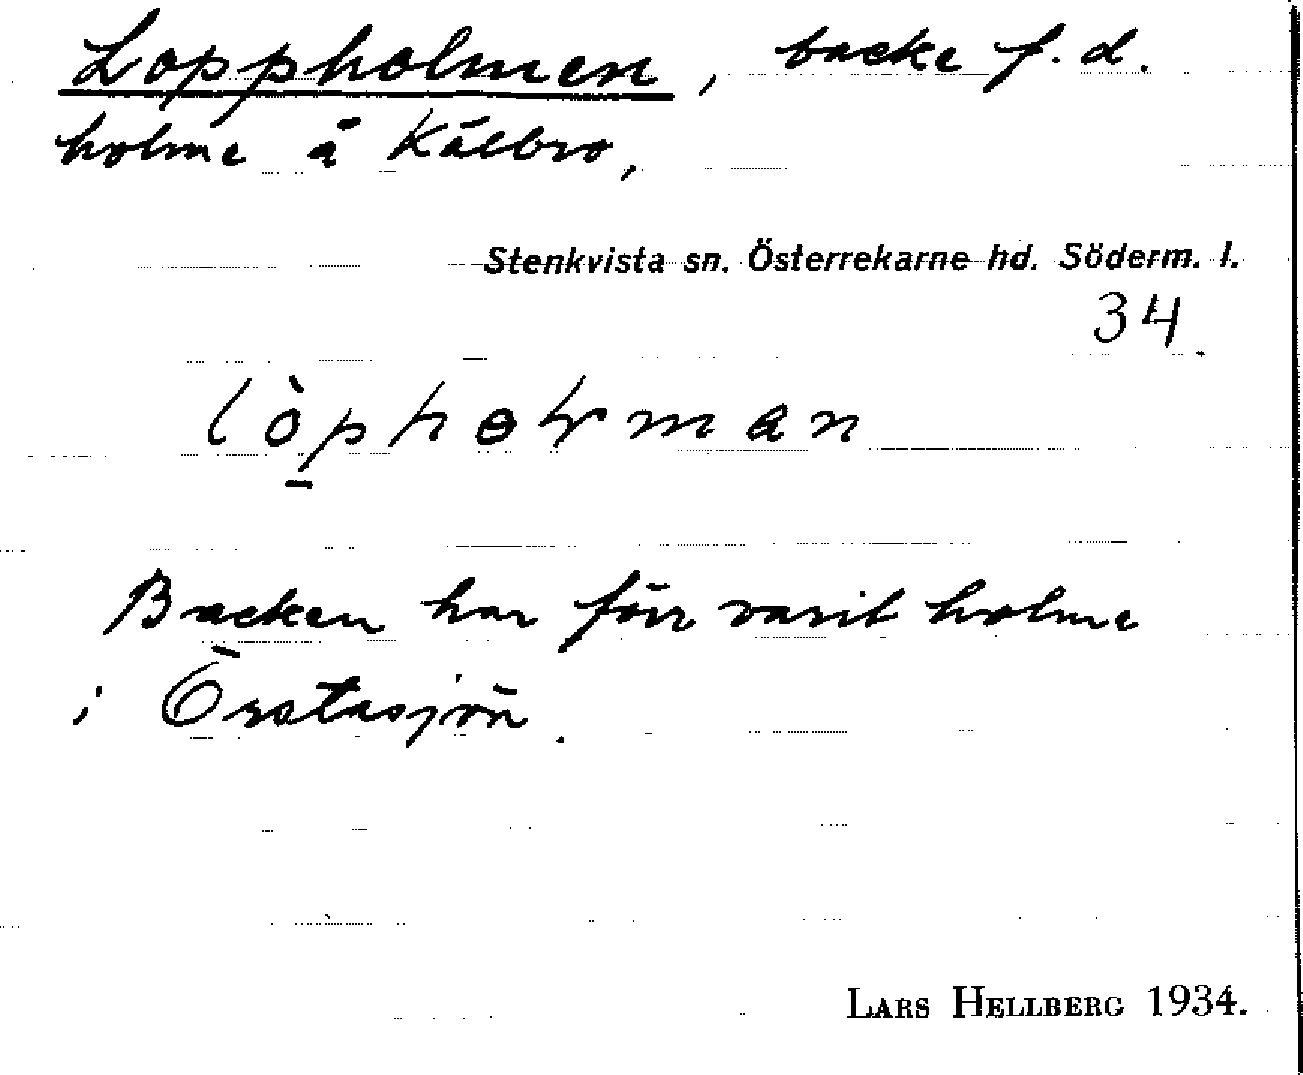 Loppholmen, backe f.d.
holme å Kälbro,
Stenkvista sn. Österrekarne hd. Söderm. l.
34.
Backen har förr varit holme
i Örstasjön.
LARS HELLBERG 1934.